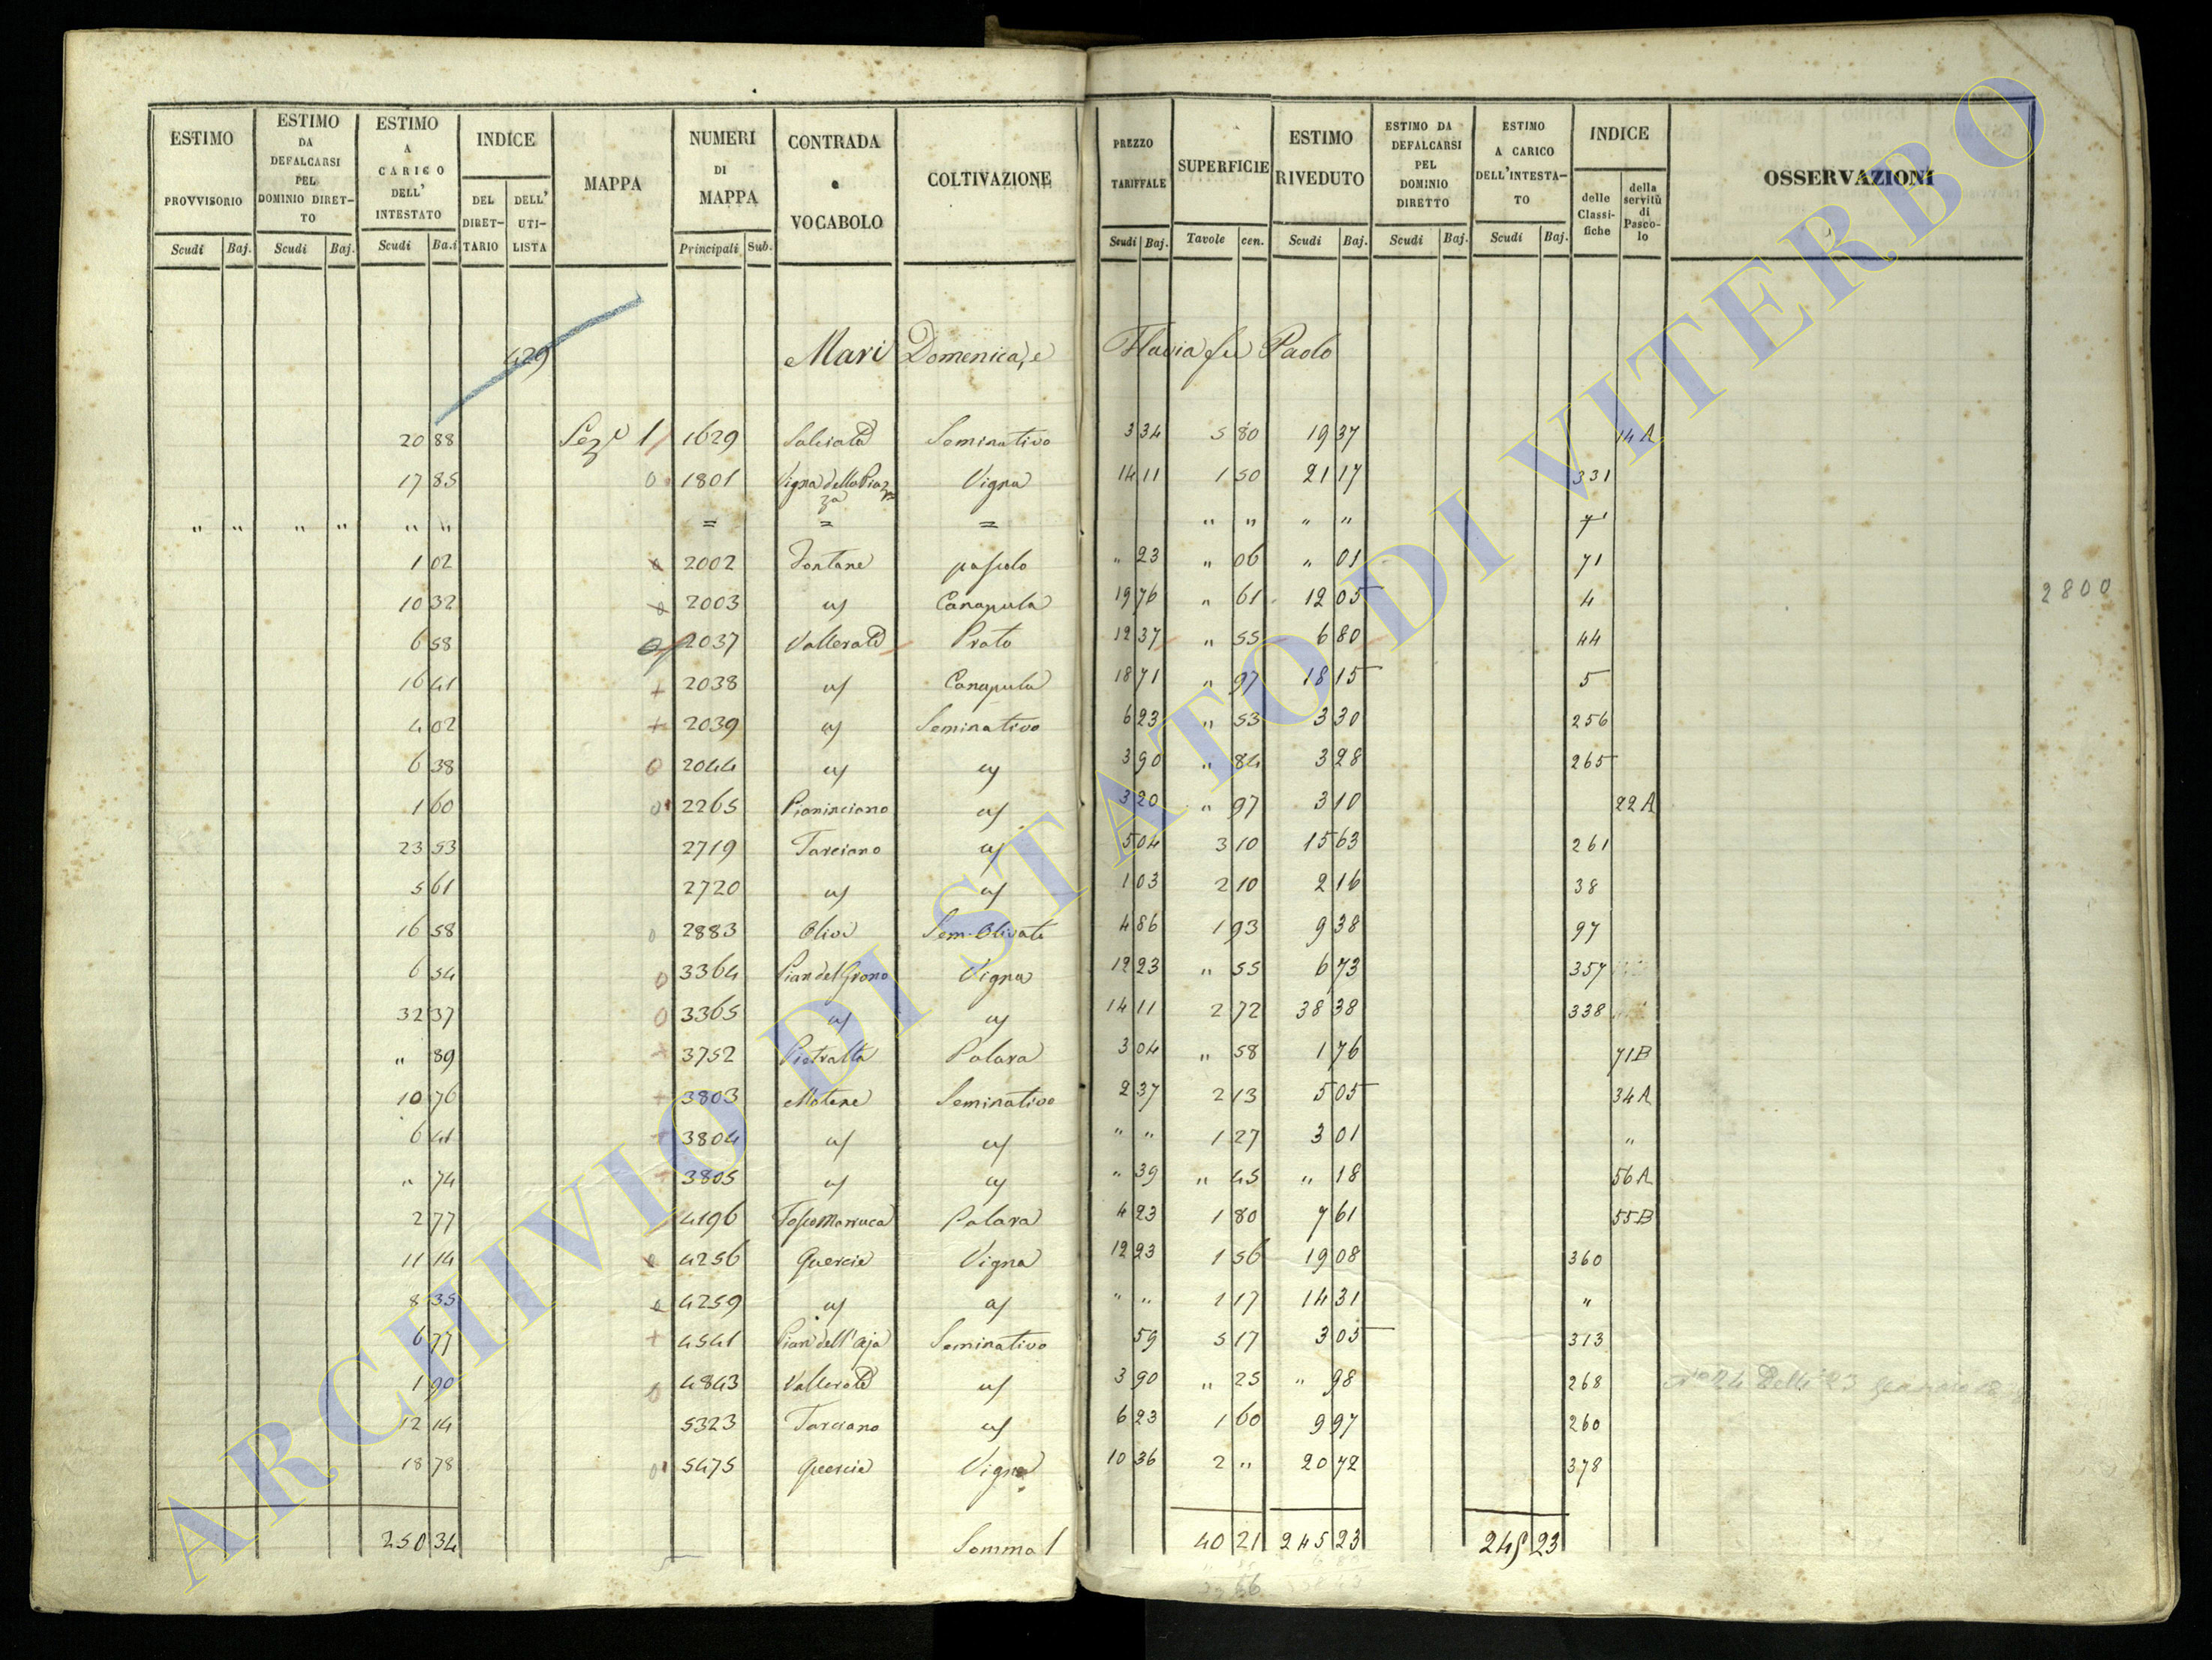 ESTIMO PROVVISORIO Scudi Baj.
ESTIMO DA DEFALCARSI PEL DOMINIO DIRETTO Scudi Baj.
ESTIMO A CARICO DELL' INTESTATO Scudi Ba.i
INDICE DEL DIRETTARIO DELL' UTILISTA
MAPPA
NUMERI DI MAPPA Principali Sub.
CONTRADA e VOCABOLO
COLTIVAZIONE
PREZZO TARIFFALE Scudi Baj.
SUPERFICIE Tavole cen.
ESTIMO RIVEDUTO Scudi Baj.
ESTIMO DA DEFALCARSI PEL DOMINIO DIRETTO Scudi Baj.
ESTIMO A CARICO DELL'INTESTATO Scudi Baj.
INDICE delle Classifiche della servitù di Pascolo
OSSERVAZIONI
429 Mari Domenica, e Flavia fu Paolo
20 88 Sez.e 1 1629 Seminativo 3 34 5 80 19 37 14 A
17 85 0 1801 Vigna della Piazza Vigna 14 11 1 50 21 17 331
" " " " " " = = = " " " " 7
1 02 2002 Fontane pascolo " 23 " 06 " 01 71
10 32 2003 cs Canapula 19 76 " 61 12 05 4
6 58 2037 Vallerate Prato 12 37 " 55 6 80 44
16 41 + 2038 cs Canapula 18 71 " 97 18 15 5
4 02 + 2039 cs Seminativo 6 23 " 53 3 30 256
6 38 0 2044 cs cs 3 90 " 84 3 28 265
1 60 0 2265 Pianinciano cs 3 20 " 97 3 10 22 A
23 53 2719 Tarciano cs 5 04 3 10 15 63 261
5 61 2720 cs cs 1 03 2 10 2 16 38
16 58 0 2883 Olivi Sem. Olivato 4 86 1 93 9 38 97
6 54 0 3364 Pian del Grano Vigna 12 23 " 55 6 73 357
32 37 0 3365 cs cs 14 11 2 72 38 38 338
" 89 + 3752 Pietralta Palara 3 04 " 58 1 76 71 B
10 76 + 3803 Matene Seminativo 2 37 2 13 5 05 34 A
6 41 + 3804 cs cs " " 1 27 3 01 "
" 74 + 3805 cs cs " 39 " 45 " 18 56 A
2 77 4196 Palara 4 23 1 80 7 61 55 B
11 14 4256 Quercie Vigna 12 23 1 56 19 08 360
8 35 4259 cs cs " " 1 17 14 31 "
6 77 + 4541 Pian dell'Aja Seminativo 59 5 17 3 05 313
1 90 0 4843 Vallerate cs 3 90 " 25 " 98 268
12 14 5323 Tarciano cs 6 23 1 60 9 97 260
18 78 0 5475 Quercie Vigna 10 36 2 " 20 72 378
250 34 Somma 40 21 245 23 245 23
2800
ARCHIVIO DI STATO DI VITERBO